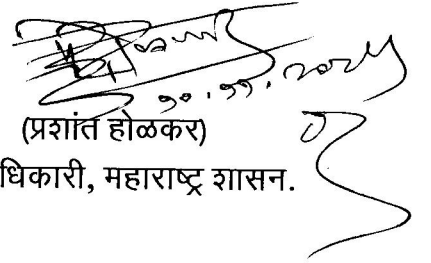 १०.११.२०२५
(प्रशांत होळकर)
धिकारी, महाराष्ट्र शासन.